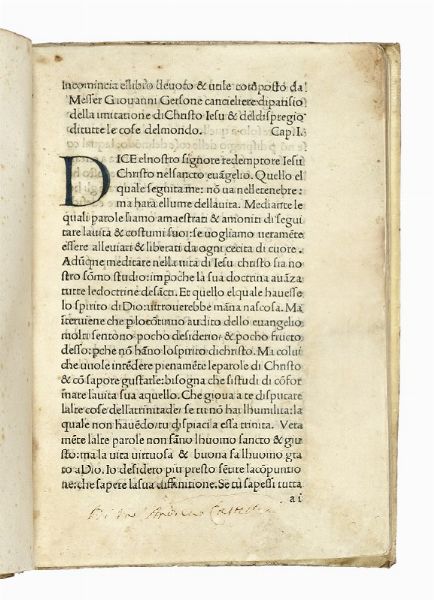 Incomincia el libro deuoto & utile cōposto da
Messer Giouanni Gersone cancieliere di parisio
della imitatione di Christo Iesu & del dispregio
di tutte le cose del mondo. Cap. I.
DICE el nostro signore redemptore Iesu
Christo nel sancto euāgelio. Quello el
quale seguita me: nō ua nelle tenebre:
ma hara el lume della uita. Mediante le
quali parole siamo amaestrati & amoniti di segui
tare la uita & costumi suoi: se uogliamo ueramēte
essere alleuiati & liberati da ogni cecita di cuore.
Adūque meditare nella uita di Iesu christo sia no
stro sōmo studio: impoche la sua doctrina auāza
tutte le doctrine de sācti. Et quello el quale hauesse
lo spirito di Dio: ui trouerebbe māna nascosa. Ma
īteruiene che p lo cōtinuo audito dello euangelio
molti sentono pocho desiderio & pocho fructo
desso: pche nō hāno lo spirito di christo. Ma colui
che uuole intēdere pienamēte le parole di Christo
& cō sapore gustarle: bisogna che si studi di cōfor
mare la uita sua a quello. Che gioua a te disputare
lalte cose della trinitade: se tu nō hai lhumilita: la
quale non hauēdo: tu dispiaci a essa trinita. Vera
mēte lalte parole non fāno lhuomo sancto & giu
sto: ma la uita uirtuosa & buona fa lhuomo gra
to a Dio. Io desidero piu presto sētire la cōpuntio
ne: che sapere la sua diffinitione. Se tu sapessi tutta
a i